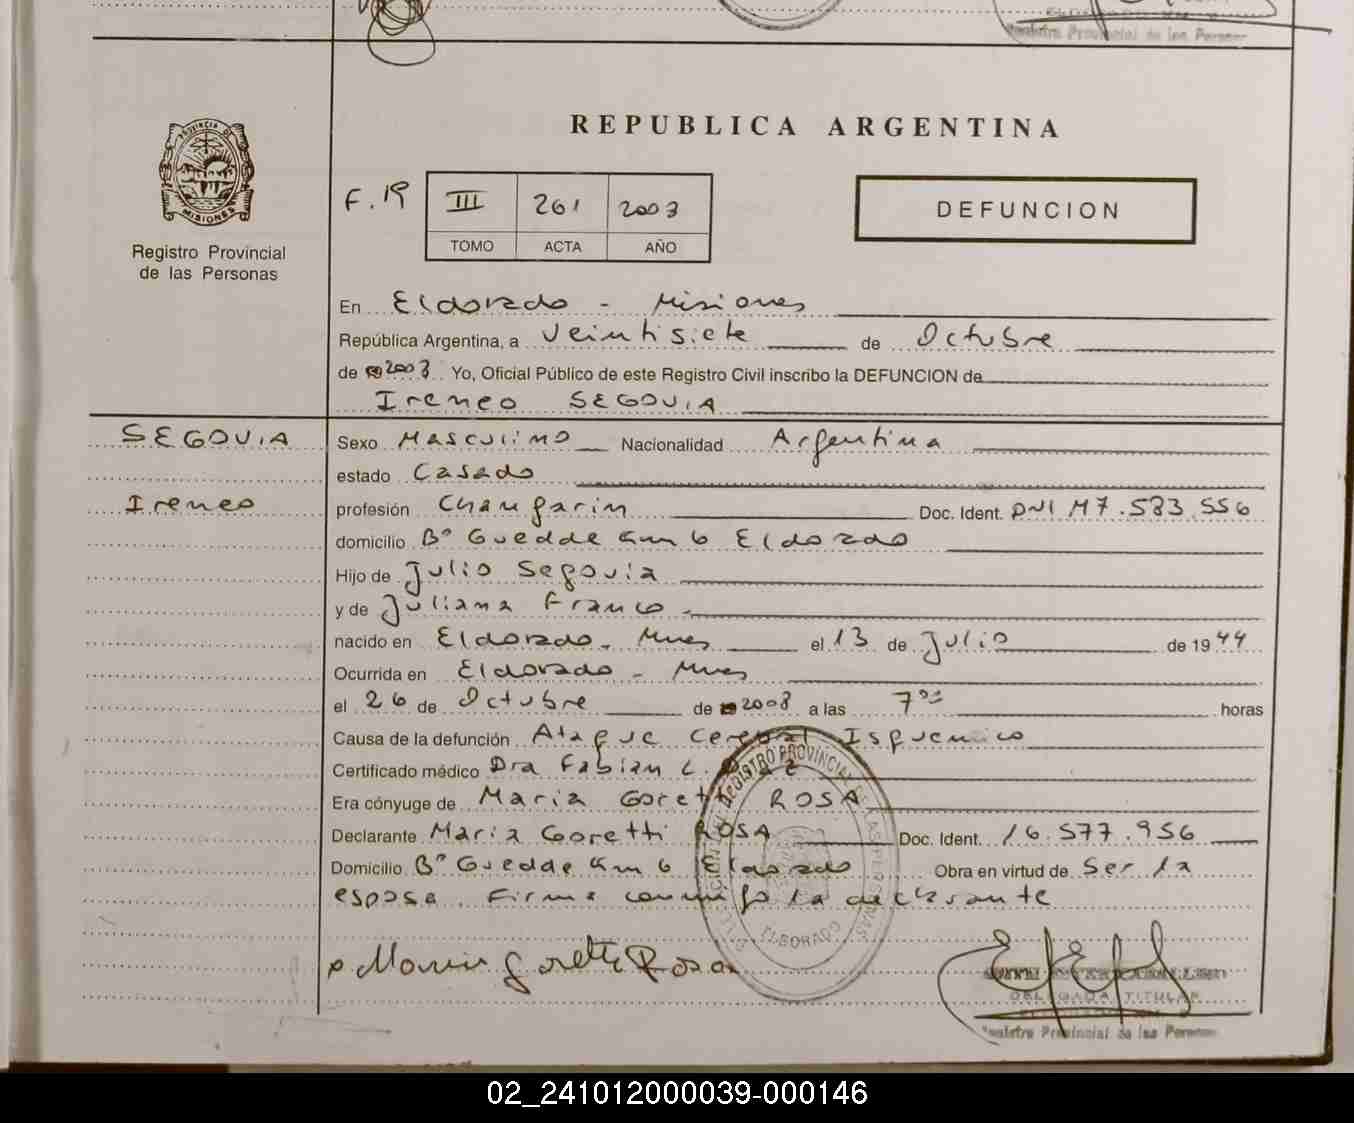 Registro Provincial de las Personas
REPUBLICA ARGENTINA
PROVINCIA DE
MISIONES
Registro Provincial
de las Personas
F. 19
III 261 2003
TOMO ACTA AÑO
DEFUNCION
En Eldorado - Misiones
República Argentina, a veintisiete de Octubre
de 2003 Yo, Oficial Público de este Registro Civil inscribo la DEFUNCION de
Ireneo SEGOVIA
SEGOVIA
Ireneo
Sexo Masculino Nacionalidad Argentina
estado Casado
profesión Changarin Doc. Ident. DNI M7.583.556
domicilio Bº Guedde Km 6 Eldorado
Hijo de Julio Segovia
y de Juliana Franco -
nacido en Eldorado - Mnes el 13 de Julio de 1944
Ocurrida en Eldorado - Mnes
el 26 de Octubre de 2003 a las 7⁰⁰ horas
Causa de la defunción Ataque Cerebral Isquemico
Certificado médico Dra Fabian L.
Era cónyuge de Maria Goretti ROSA
Declarante Maria Goretti ROSA Doc. Ident. 16.577.956
Domicilio Bº Guedde Km 6 Eldorado Obra en virtud de Ser la
esposa. Firma conmigo la declarante
REGISTRO PROVINCIAL DE LAS PERSONAS
ELDORADO
Maria Goretti Rosa
DELEGADA TITULAR
Registro Provincial de las Personas
02_241012000039-000146